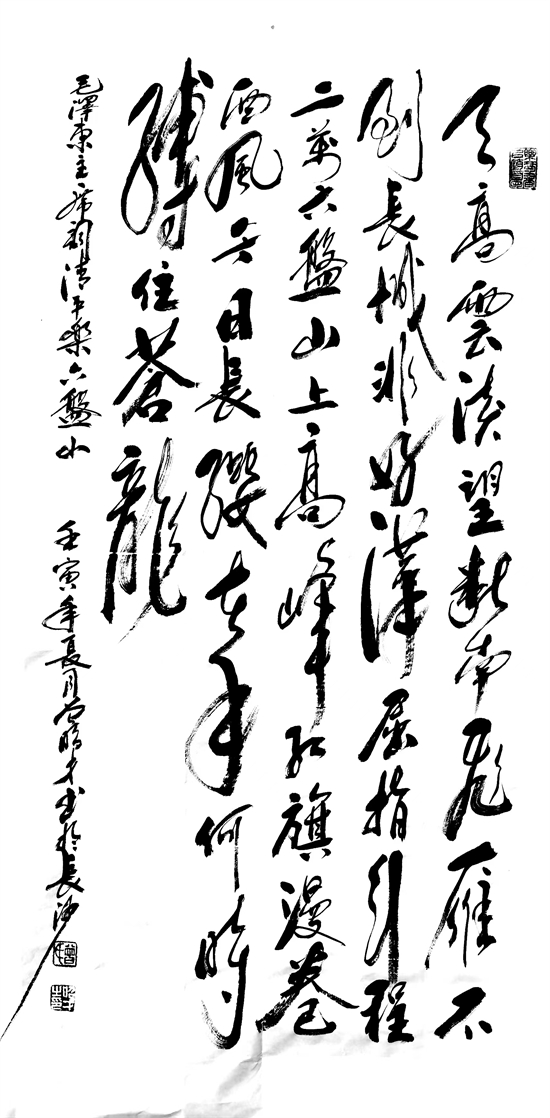 天高雲淡望斷南飛雁不
到長城非好漢屈指行程
二萬六盤山上高峰紅旗漫卷
西風今日長纓在手何時
縛住蒼龍
毛澤東主席詞清平樂六盤山
壬寅年夏月書於長沙